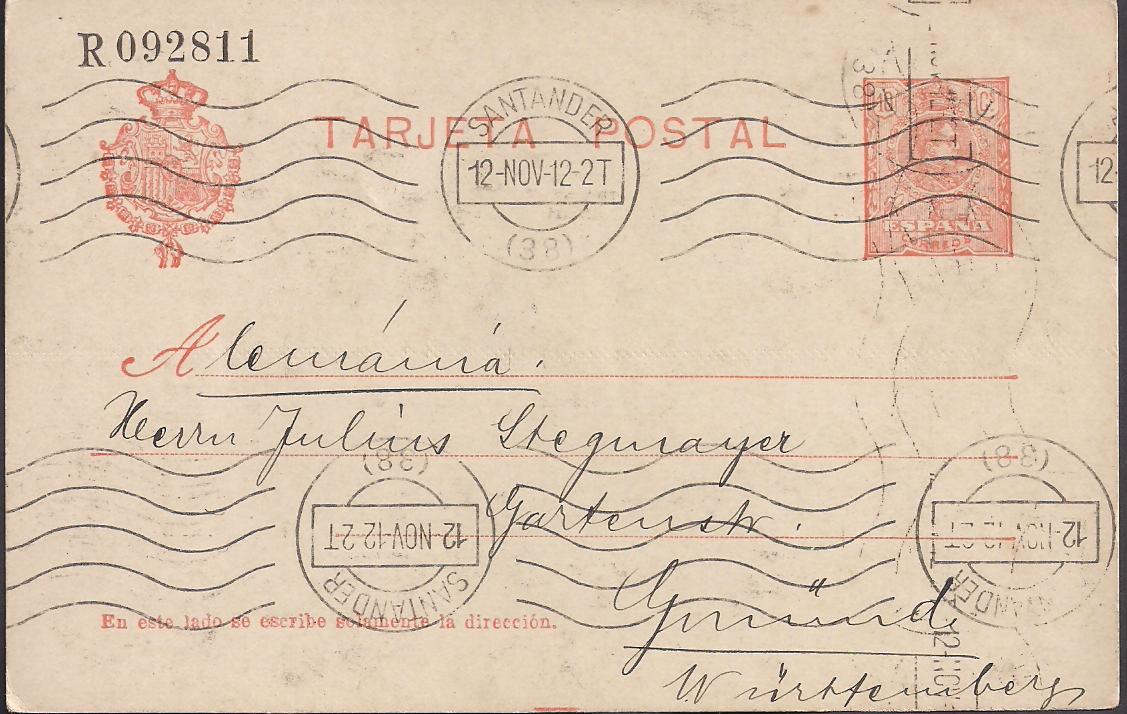 R 092811
TARJETA POSTAL
SANTANDER
12-NOV-12-2T
(38)
12-
ESPAÑA
CORREOS
Alemánia.
Herrn Julius Stegmayer
Gartenstr.
Gmünd
Württemberg
(38)
12-NOV-12-2T
SANTANDER
(38)
12-NOV-12-2T
SANTANDER
En este lado se escribe solamente la dirección.